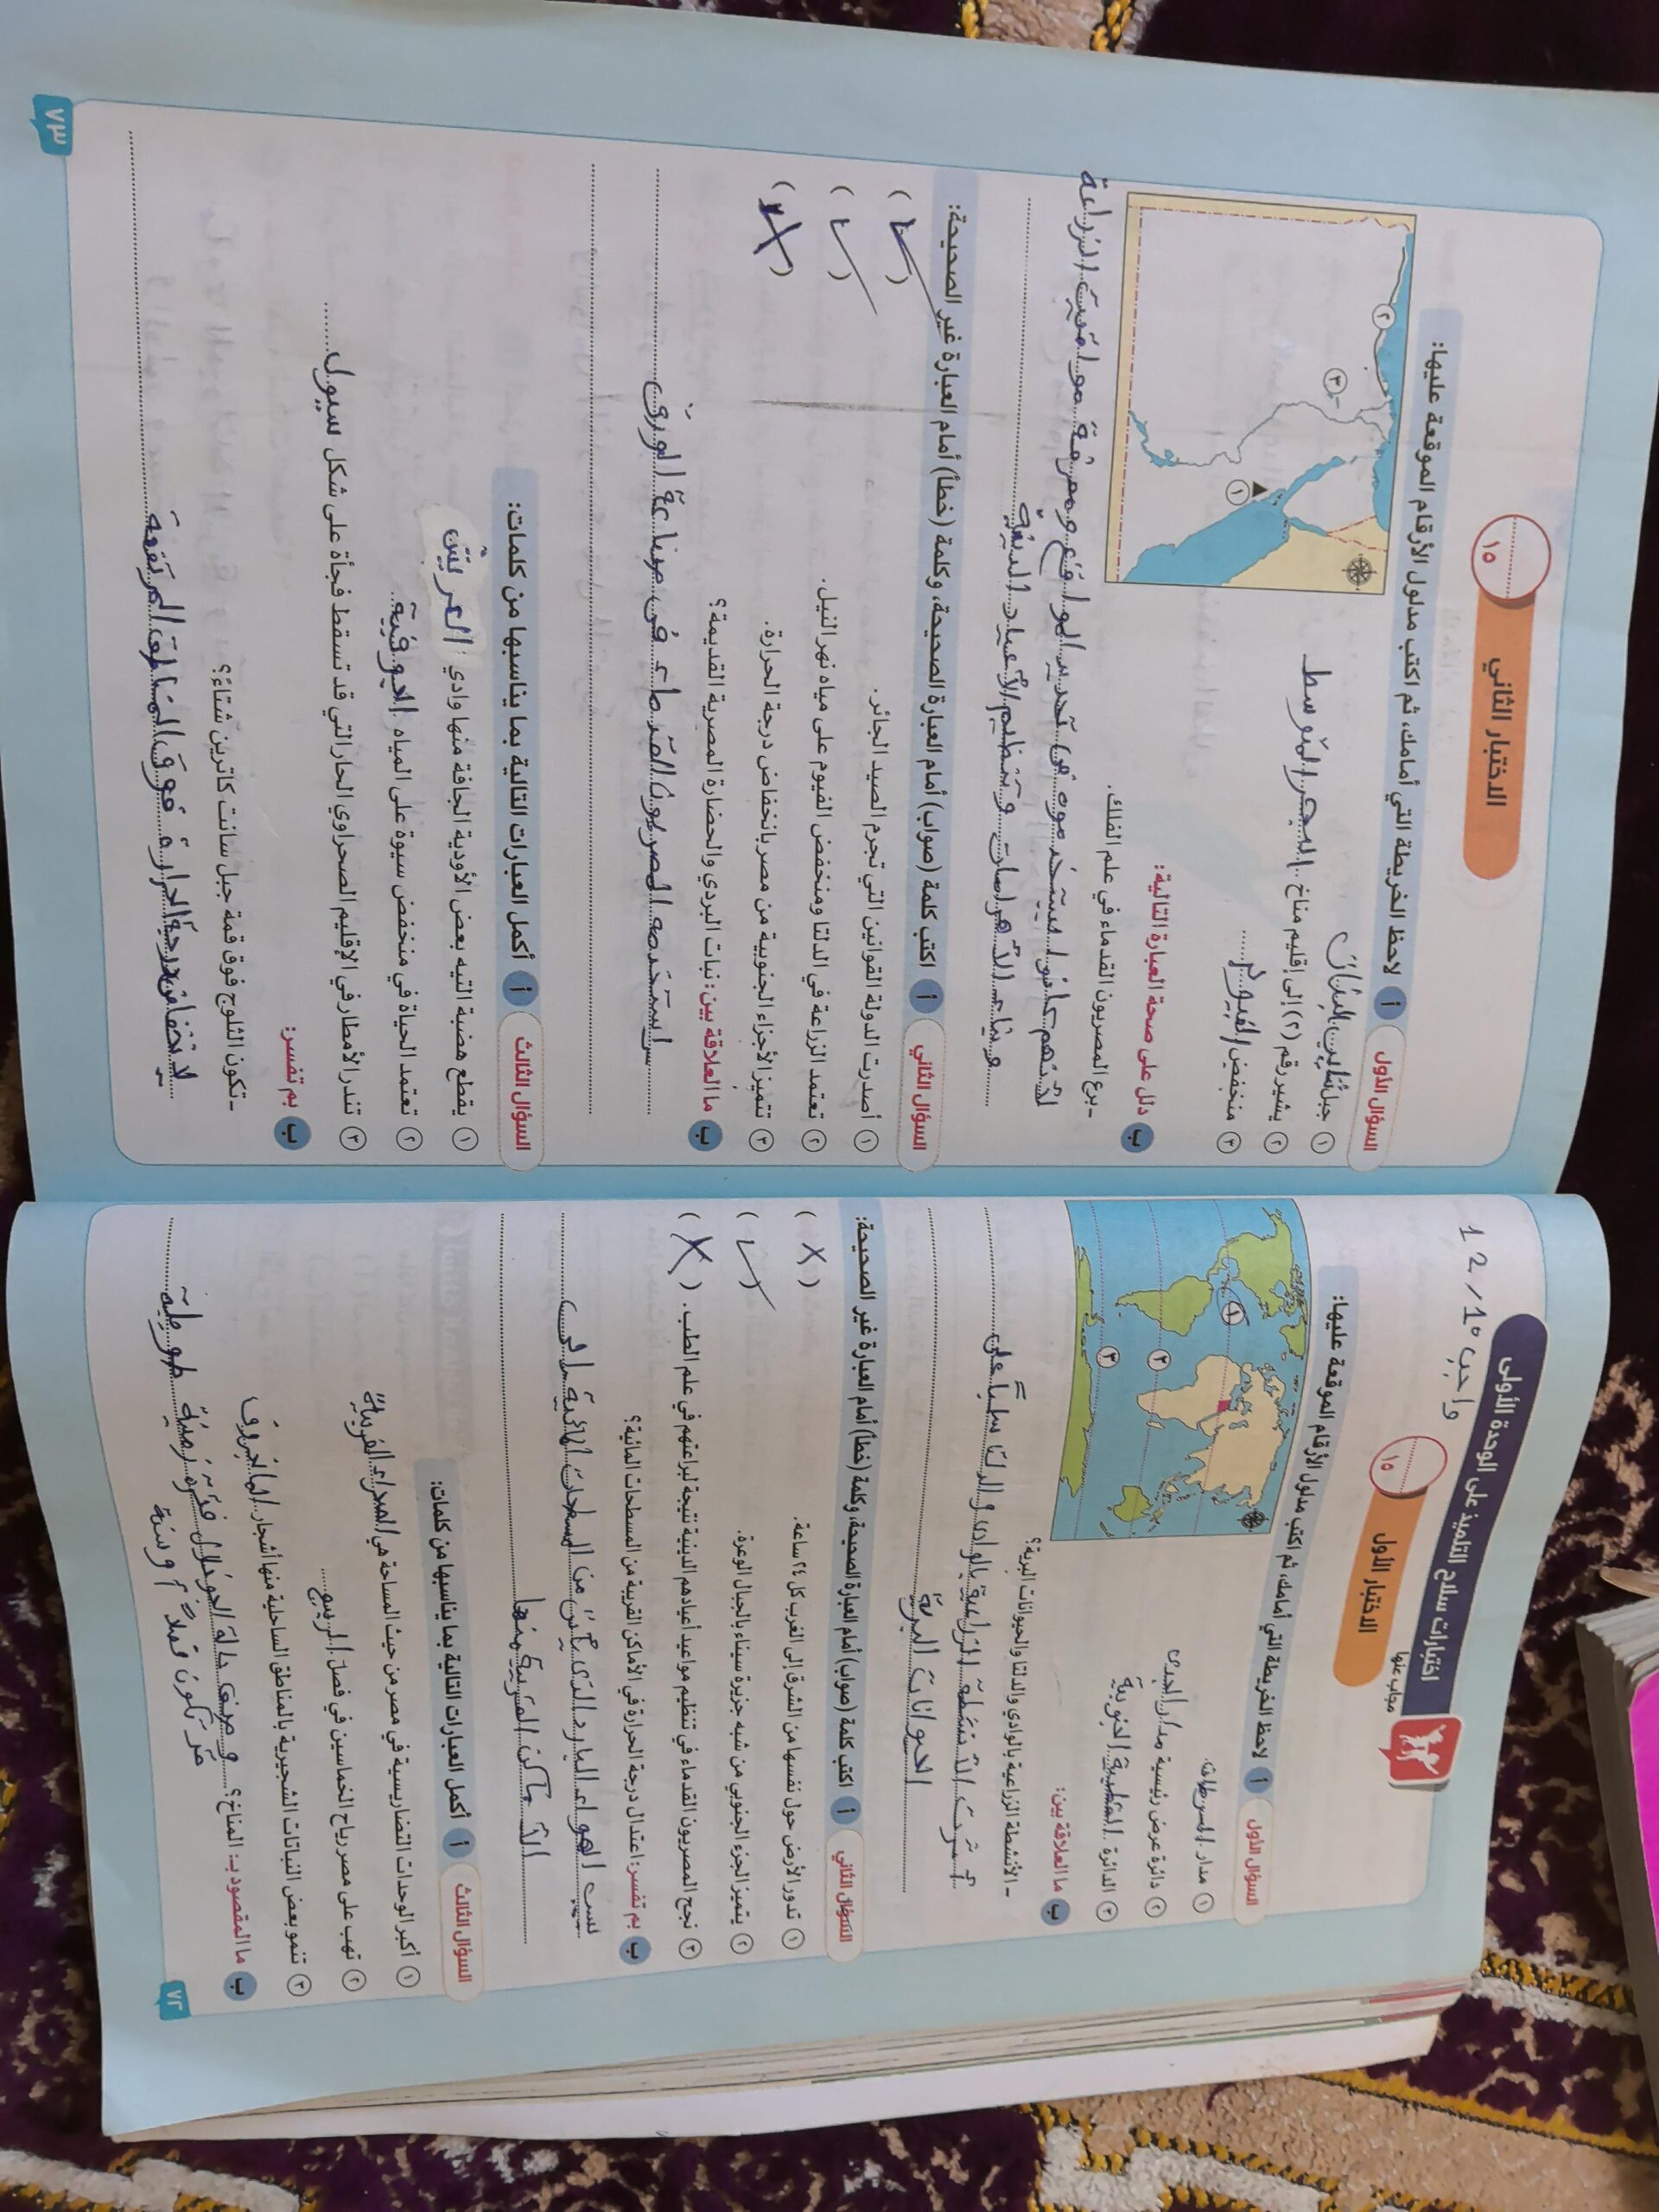 اختبارات سلاح التلميذ على الوحدة الأولى
مجاب عنها
واجب 12/10
الاختبار الأول
١٥
السؤال الأول
أ لاحظ الخريطة التي أمامك، ثم اكتب مدلول الأرقام الموقعة عليها:
١ مدار السرطان
٢ دائرة عرض رئيسية مدار الجدى
٣ الدائرة القطبية الجنوبية
١
٢
٣
ب ما العلاقة بين:
- الأنشطة الزراعية بالوادي والدلتا والحيوانات البرية؟
أثرت الأنشطة الزراعية بالوادى والدلتا سلباً على
الحيوانات البرية
السؤال الثاني
أ اكتب كلمة (صواب) أمام العبارة الصحيحة، وكلمة (خطأ) أمام العبارة غير الصحيحة:
١ تدور الأرض حول نفسها من الشرق إلى الغرب كل ٢٤ ساعة. (X)
٢ يتميز الجزء الجنوبي من شبه جزيرة سيناء بالجبال الوعرة. (✓)
٣ نجح المصريون القدماء في تنظيم مواعيد أعيادهم الدينية نتيجة لبراعتهم في علم الطب. (X)
ب بم تفسر: اعتدال درجة الحرارة في الأماكن القريبة من المسطحات المائية؟
بسبب الهواء البارد الذى يأتى من المسطحات المائية إلى
الأماكن القريبة منها
السؤال الثالث
أ أكمل العبارات التالية بما يناسبها من كلمات:
١ أكبر الوحدات التضاريسية في مصر من حيث المساحة هي الصحراء الغربية
٢ تهب على مصر رياح الخماسين في فصل الربيع
٣ تنمو بعض النباتات الشجيرية بالمناطق الساحلية منها أشجار المانجروف
ب ما المقصود بـ: المناخ؟ وصف حالة الجو خلال فترة زمنية طويلة
قد تكون فصلاً أو سنة
٧٢
الاختبار الثاني
١٥
السؤال الأول
أ لاحظ الخريطة التي أمامك، ثم اكتب مدلول الأرقام الموقعة عليها:
١ جبل شايب البنات
٢ يشير رقم (٢) إلى إقليم مناخ البحر المتوسط
٣ منخفض الفيوم
١
٢
٣
ب دلل على صحة العبارة التالية:
- برع المصريون القدماء في علم الفلك.
لأنهم كانوا يستخدموه فى تحديد المواقع ومعرفة مواقيت الزراعة
وبناء الأهرامات وتنظيم الأعياد الدينية
السؤال الثاني
أ اكتب كلمة (صواب) أمام العبارة الصحيحة، وكلمة (خطأ) أمام العبارة غير الصحيحة:
١ أصدرت الدولة القوانين التي تجرم الصيد الجائر. (✓)
٢ تعتمد الزراعة في الدلتا ومنخفض الفيوم على مياه نهر النيل. (✓)
٣ تتميز الأجزاء الجنوبية من مصر بانخفاض درجة الحرارة. (X)
ب ما العلاقة بين: نبات البردي والحضارة المصرية القديمة؟
استخدمه المصريون القدماء فى صناعة الورق
السؤال الثالث
أ أكمل العبارات التالية بما يناسبها من كلمات:
١ يقطع هضبة التيه بعض الأودية الجافة منها وادي العريش
٢ تعتمد الحياة في منخفض سيوة على المياه الجوفية
٣ تندر الأمطار في الإقليم الصحراوي الحار التي قد تسقط فجأة على شكل سيول
ب بم تفسر:
- تكون الثلوج فوق قمة جبل سانت كاترين شتاءً؟
لإنخفاض درجة الحرارة فوق المناطق المرتفعة
٧٣